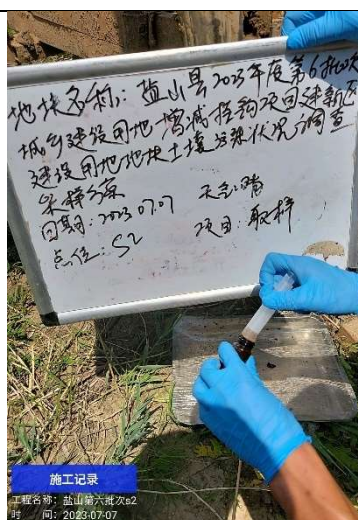 地块名称：盐山县2023年度第6批次
城乡建设用地增减挂钩项目建新区
建设用地地块土壤污染状况调查
采样方案
日期：2023.07.07 天气：晴
点位：S2 项目：取样
施工记录
工程名称：盐山第六批次s2
时 间：2023-07-07